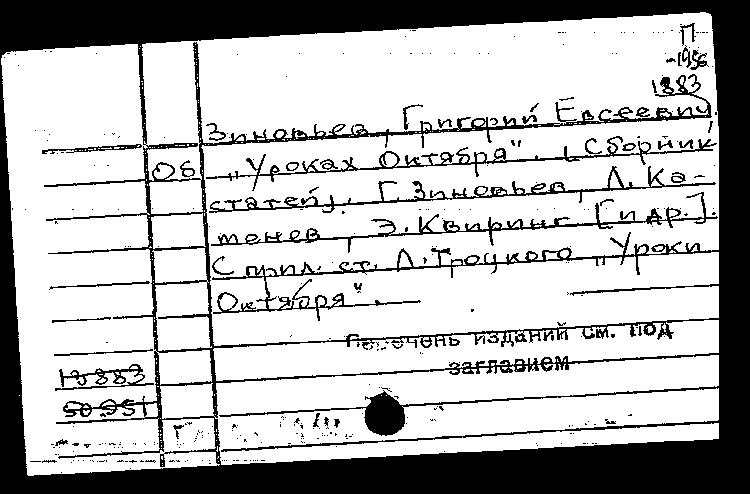 П
-1956
1883
Зиновьев, Григорий Евсеевич.
Об „Уроках Октября". [Сборник
статей]. Г. Зиновьев, Л. Ка-
менев, Э. Квиринг [и др.].
С прил. ст. Л. Троцкого „Уроки
Октября".
Перечень изданий см. под
заглавием
18883
50.951